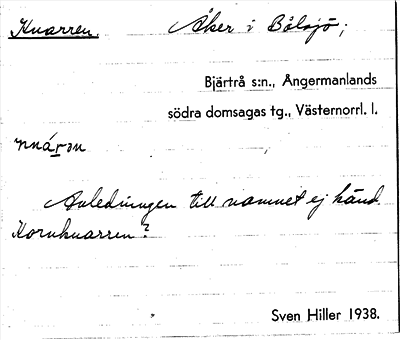 Knarren. Åker i Bölsjö;
Bjärtrå s:n., Ångermanlands
södra domsagas tg., Västernorrl. l.
Avledningen till namnet ej känd.
Kornknarren?
Sven Hiller 1938.